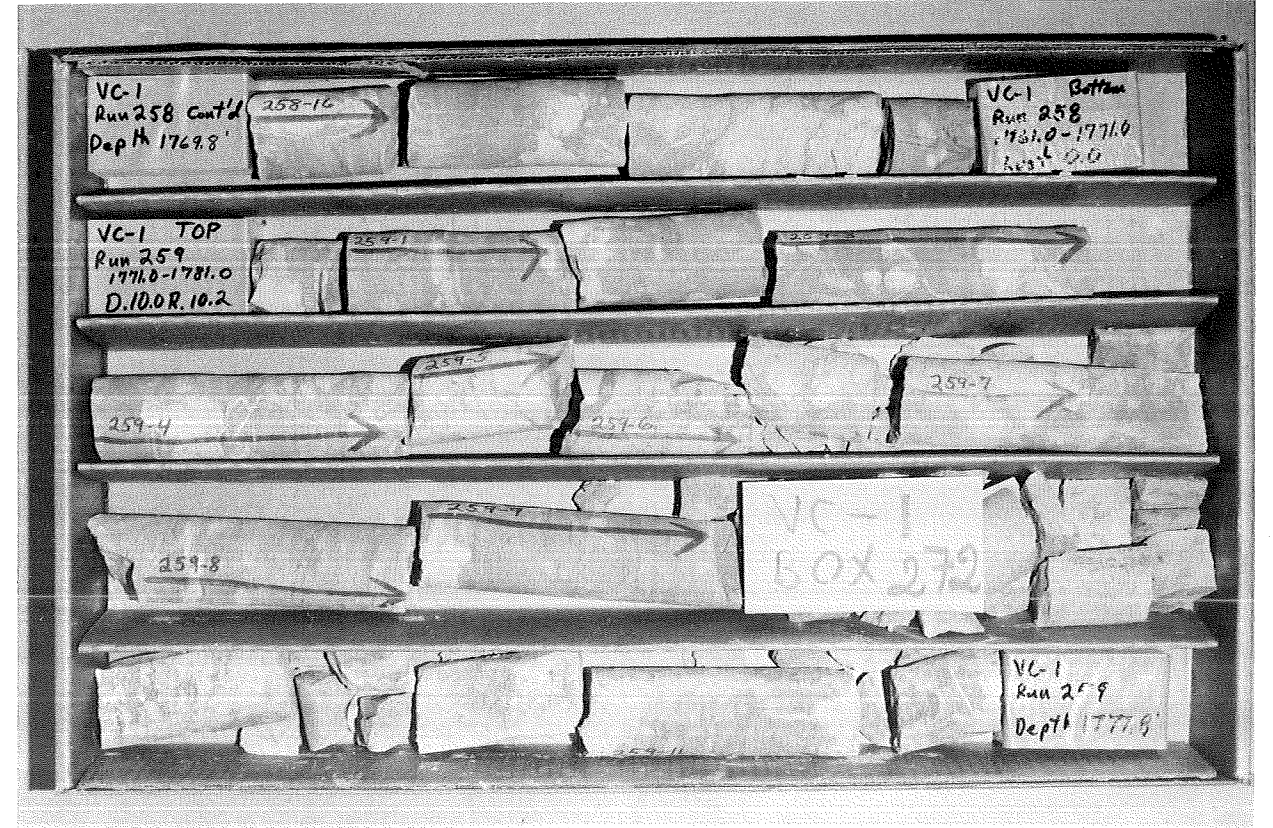 VC-1
Run 258 Cont'd
Depth 1769.8'
258-16
VC-1 Bottom
Run 258
1761.0-1771.0
0.0
VC-1 TOP
Run 259
1771.0-1781.0
D.10.0 R.10.2
259-1
259-3
259-4
259-5
259-6
259-7
259-8
259-9
VC-1
BOX 272
259-11
VC-1
Run 259
Depth 1777.9'